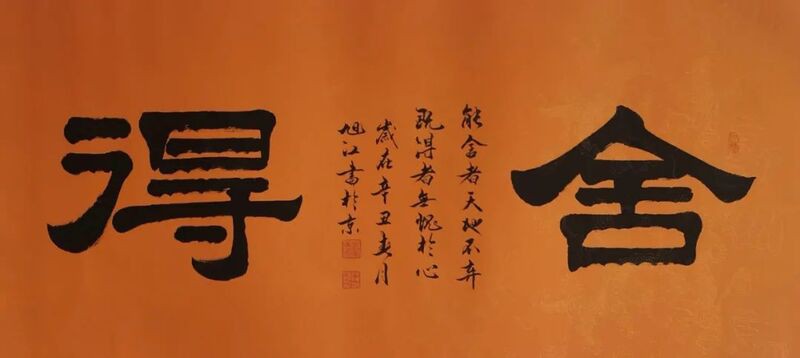 舍
能舍者天地不弃
既得者无愧於心
岁在辛丑春月
旭江书於京
得